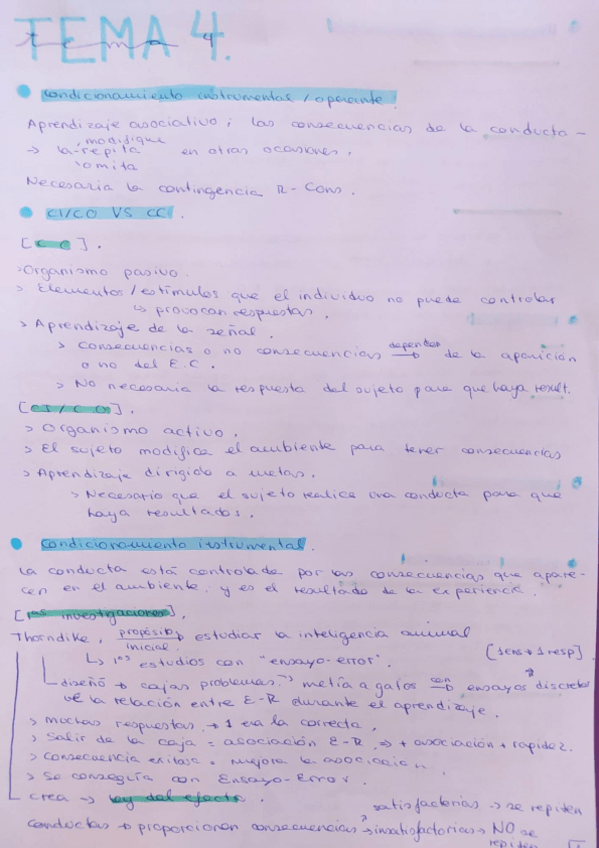 TEMA 4.
tema 4
Condicionamiento instrumental / operante.
Aprendizaje asociativo ; las consecuencias de la conducta -
modifique
→ la repita en otras ocasiones.
omita
Necesaria la contingencia R - Cons.
CI/CO VS CC.
[CC].
> Organismo pasivo.
> Elementos/estímulos que el individuo no puede controlar
↳ provocan respuestas.
> Aprendizaje de la señal.
> Consecuencias o no consecuencias dependen → de la aparición
o no del E.C.
> NO necesaria la respuesta del sujeto para que haya result.
[CI/CO].
> Organismo activo.
> El sujeto modifica el ambiente para tener consecuencias
> Aprendizaje dirigido a metas.
> Necesario que el sujeto realice una conducta para que
haya resultados.
Condicionamiento instrumental.
La conducta está controlada por las consecuencias que apare-
cen en el ambiente y es el resultado de la experiencia.
[1as investigaciones].
Thorndike, propósito inicial → estudiar la inteligencia animal
↳ 1os estudios con "ensayo-error". [1 ens → 1 resp]
diseñó → cajas problemas → metía a gatos con → ensayos discretos
ve la relación entre E-R durante el aprendizaje.
> muchas respuestas → 1 era la correcta.
> Salir de la caja = asociación E-R ⇒ + asociación + rapidez.
> Consecuencia exitosa = mejora la asociación.
> Se conseguía con Ensayo-Error.
crea → ley del efecto.
satisfactorias → se repiten
conductas → proporcionan consecuencias → insatisfactorias → NO se
repiten